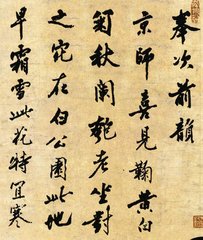 奉次前韻
京師喜見鞠黃白
菊秋闌老坐對
之在伯公園此地
早霜雪此花特宜寒